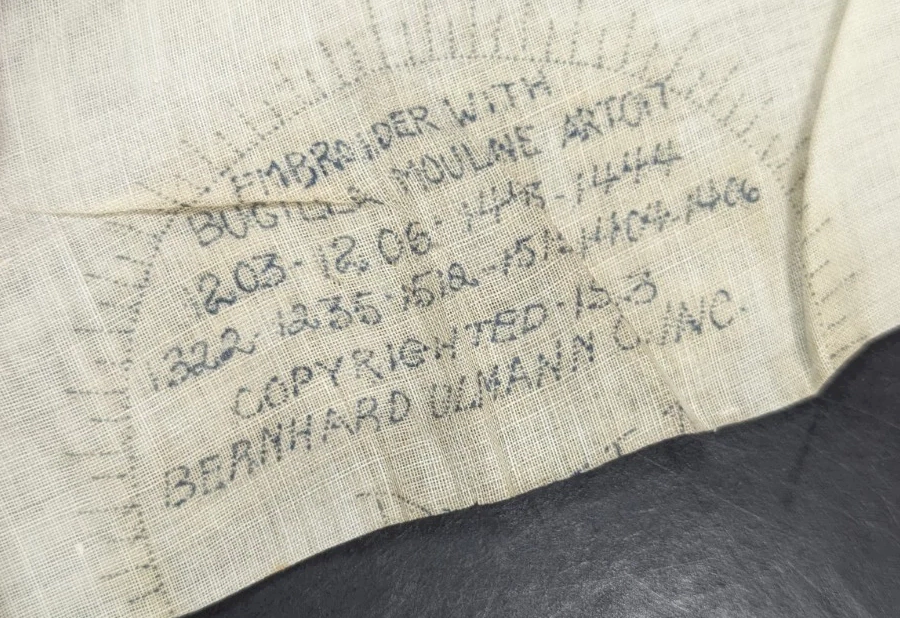 EMBROIDER WITH
BUCILLA MOULINE ARTOFT
1203-1206-1443-1444
1322-1235-1512-151 1404-1406
COPYRIGHTED-15.3
BERNHARD ULMANN C.INC.